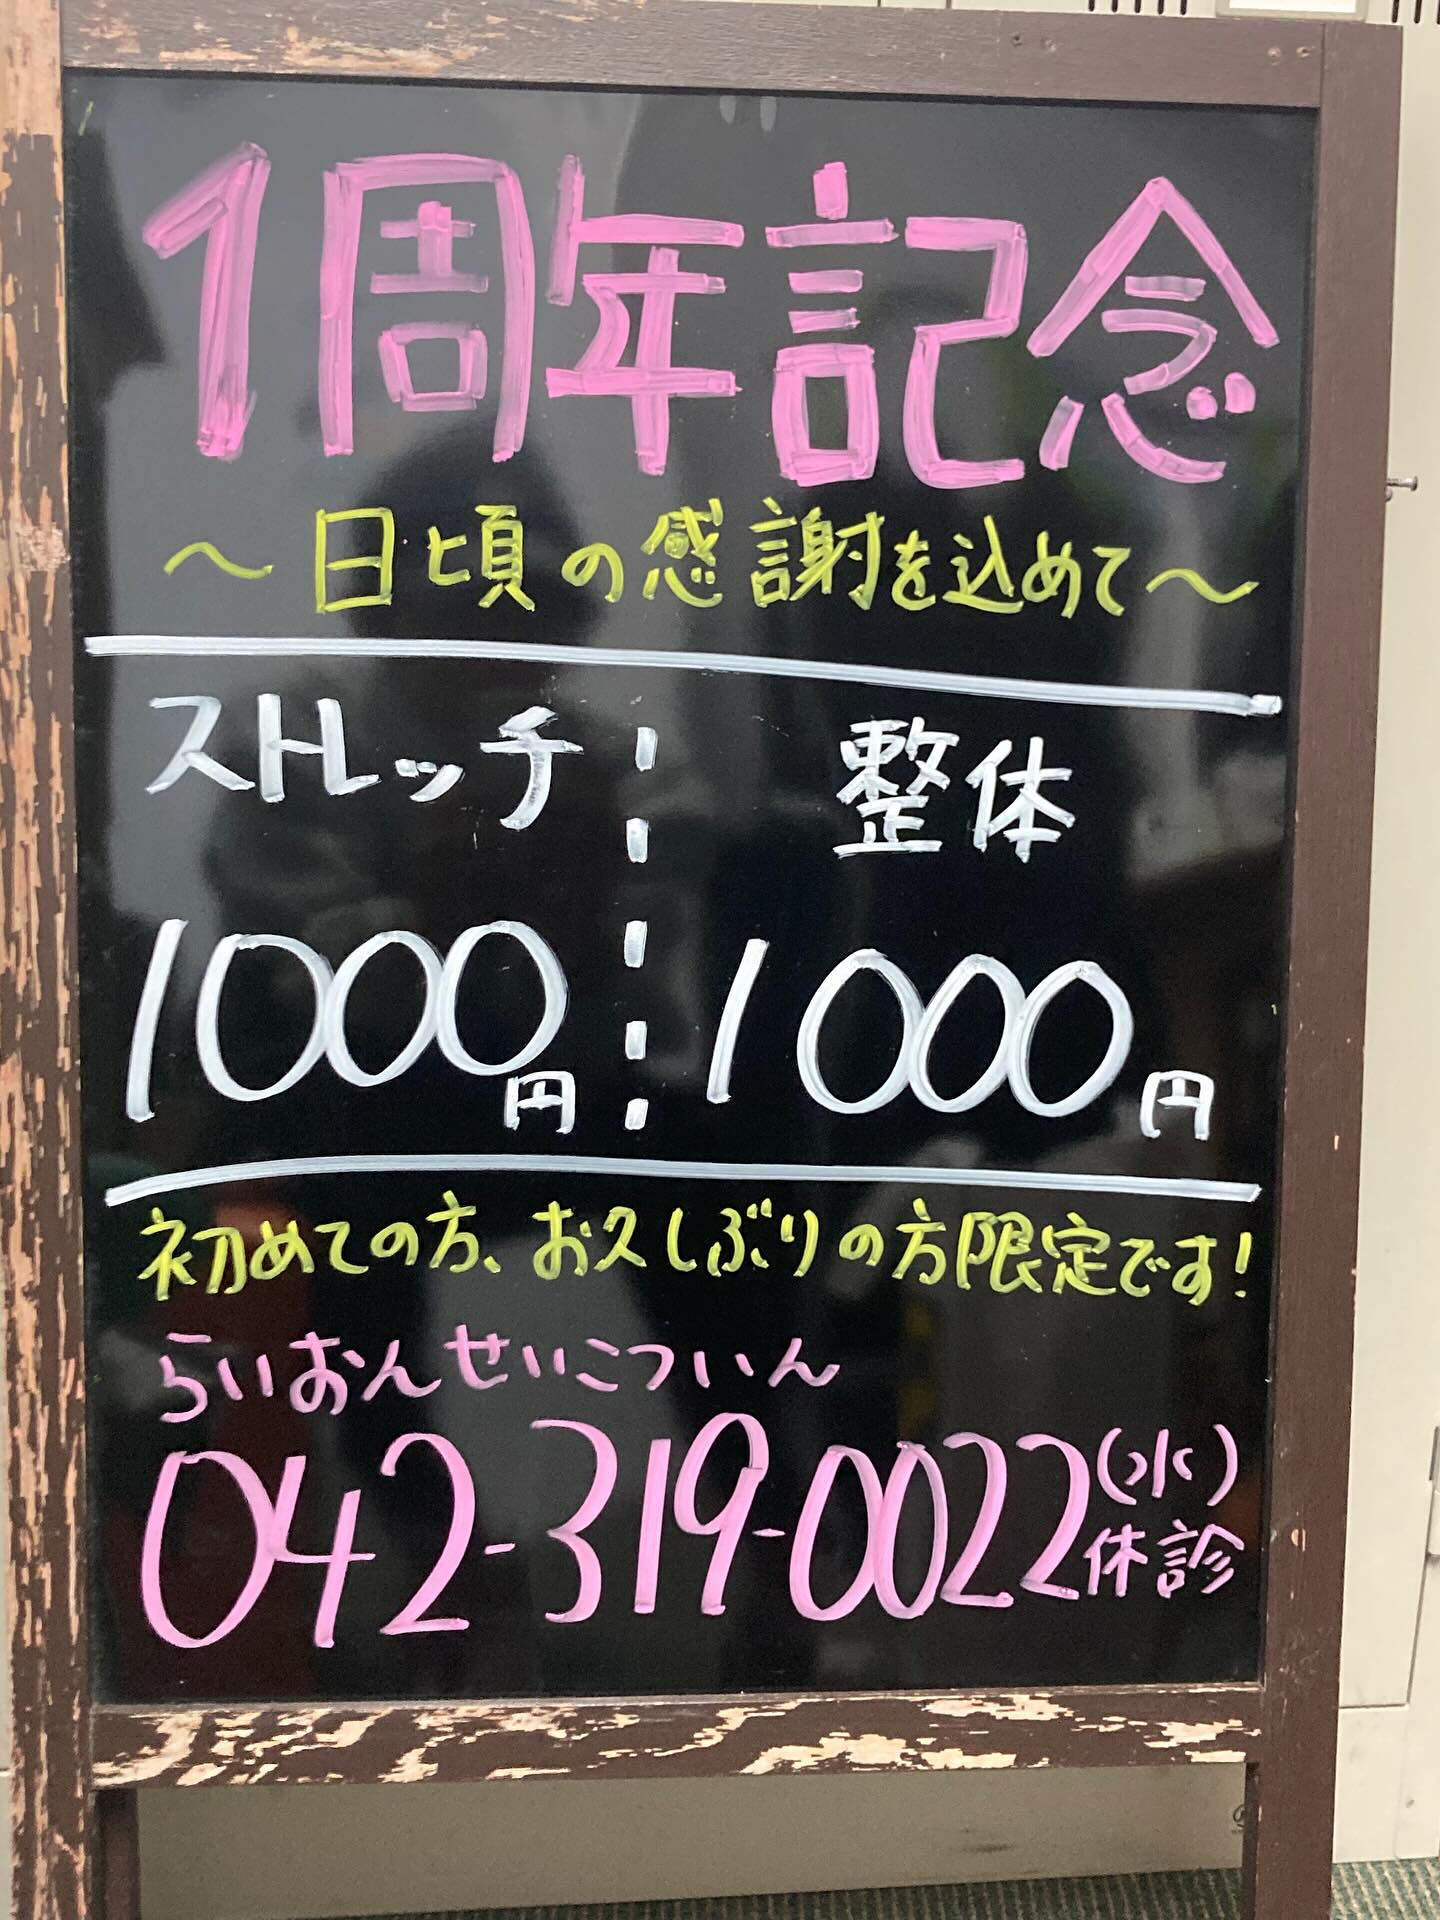 1周年記念
～日頃の感謝を込めて～
ストレッチ 整体
1000円 1000円
初めての方、お久しぶりの方限定です！
らいおんせいこついん
042-319-0022(水)休診